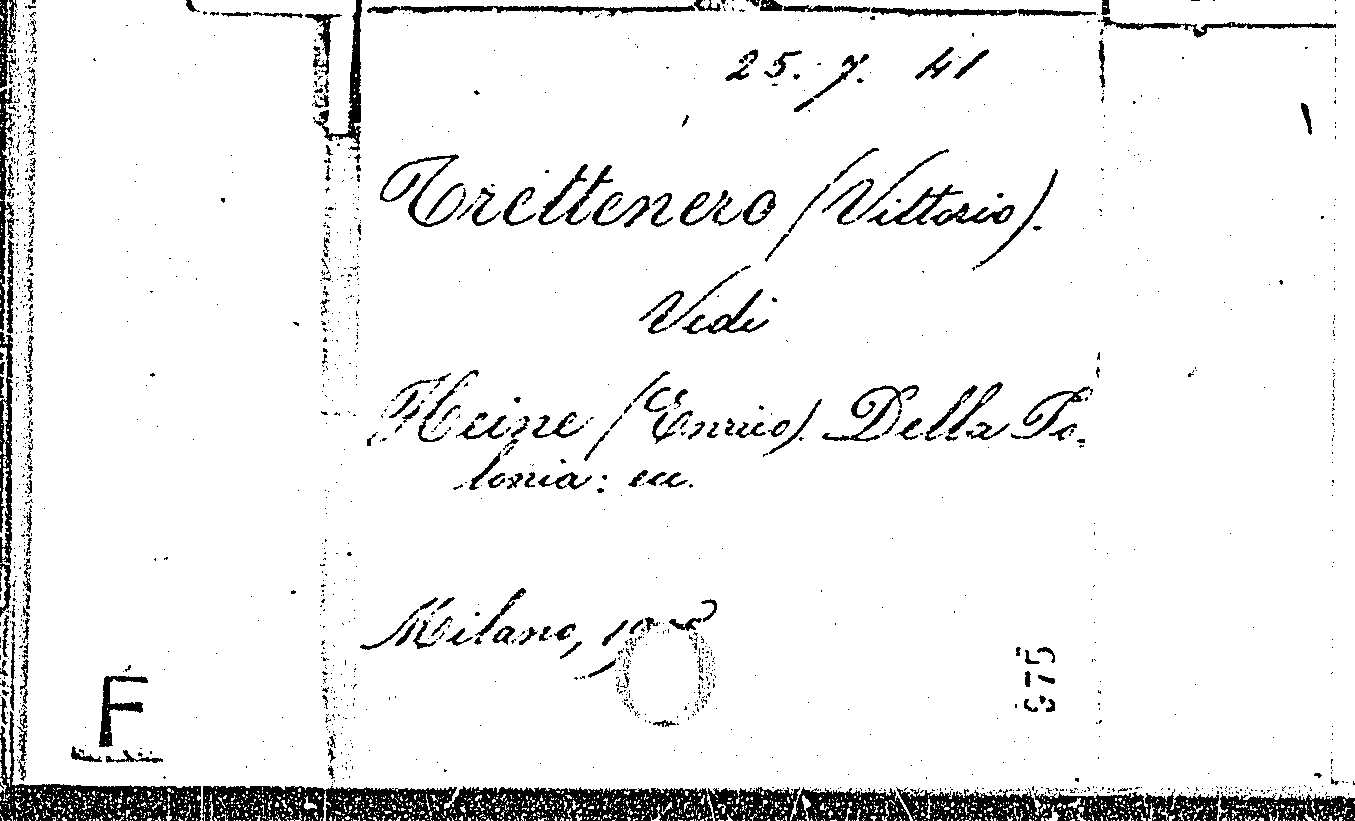 25. 7. 41
Trettenero (Vittorio).
Vedi
Heine (Enrico). Della Po-
lonia: ecc.
Milano,
F
975